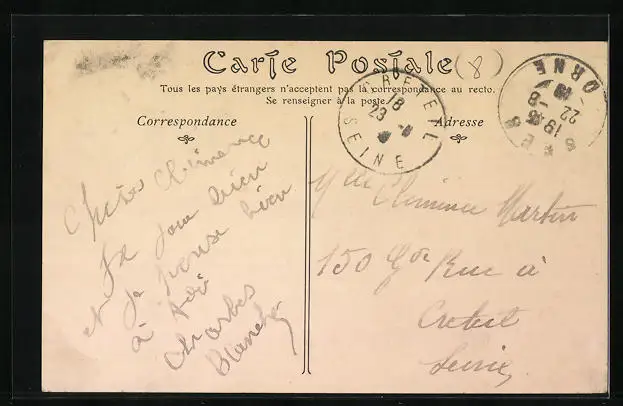 Carte Postale (8)
Tous les pays étrangers n'acceptent pas la correspondance au recto.
Se renseigner à la poste.
Correspondance
Adresse
CRETEIL
18
23 -8
SEINE
ORNE
22 -8
1945
Chère Clémence
Je
bien
et je pense bien
à toi
Charles
Blanche
Mlle Clémence Martin
150 Gde Rue à
Creteil
Seine